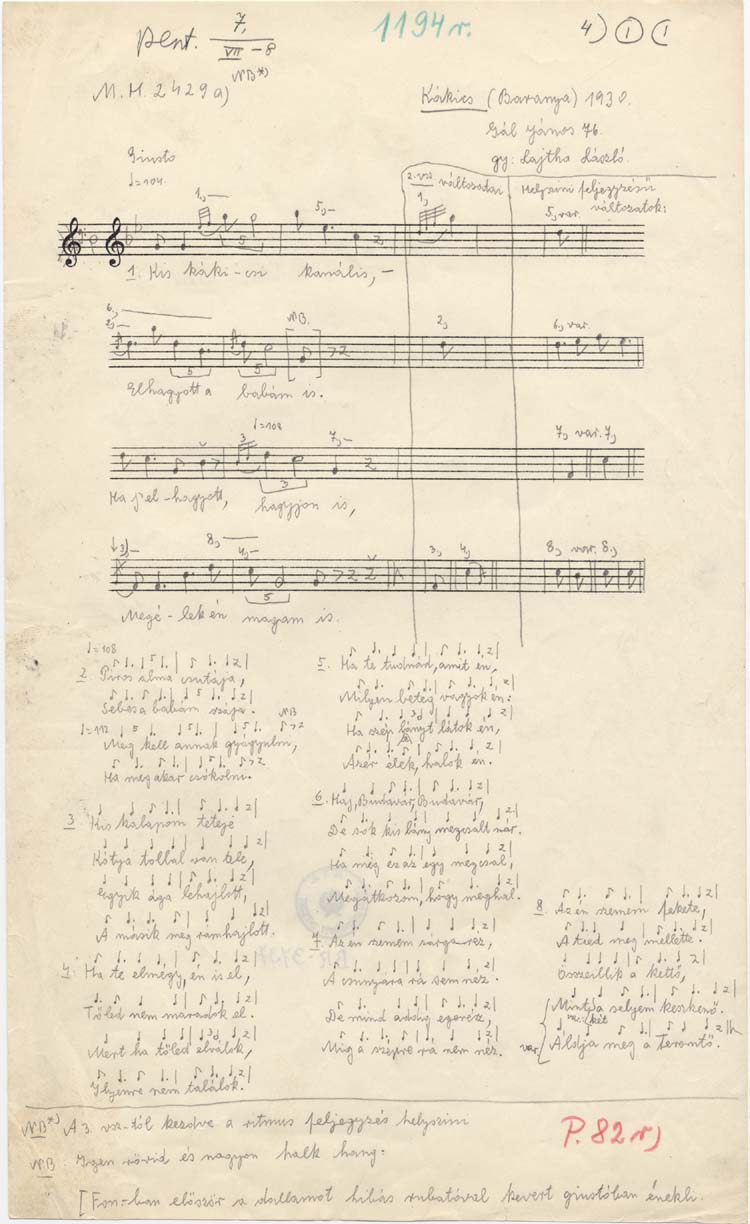 pent. 7, / VII - 8
1194 r.
4) 1 (1
NB*)
M.H. 2429 a)
Kákics (Baranya) 1930.
Gál János 76.
gy: Lajtha László.
Giusto
♩=104.
2. vsz. változatai
Helyszini feljegyzésű változatok:
1,
5,
1,
5, var.
1. Kis káki-csi kanális,
6,
2,
NB.
2,
6, var.
Elhagyott a babám is.
♩=108
3
7,
7, var. 7,
Ha elhagyott, hagyjon is,
3,
8,
4,
3, 4,
8, var. 8,
Megé-lek én magam is.
♩=108
2. Piros alma csutája,
Sebes a babám szája.
♩=112
NB
Meg kell annak gyógyulni,
Ha meg akar csókolni.
3 Kis kalapom teteje
Kótya tollal van tele,
Egyik ága lehajlott,
A másik meg rámhajlott.
4. Ha te elmégy, én is el,
Tőled nem maradok el.
Mert ha tőled elválok,
Ilyenre nem találok.
5. Ha te tudnád, amit én,
Milyen beteg vagyok én:
Ha szép lányt látok én,
Azér élek, halok én.
6. Haj, Budavár, Budavár,
De sok kis lány megcsalt már.
Ha még ez az egy megcsal,
Megátkozom, hogy meghal.
7. Az én szemem sárga réz,
A csunyára rá sem néz.
De mind addig
Mig a szépre rá nem néz.
8. Az én szemem fekete,
A tied meg mellette.
Összeillik a kettő,
Mint a selyem keszkenő.
var. Áldja meg a Teremtő.
NB*) A 3. vsz-tól kezdve a ritmus feljegyzés helyszini
P. 82 r)
NB: Igen rövid és nagyon halk hang.
[Fon.-ban először a dallamot hibás rubatóval kevert giustóban énekli.